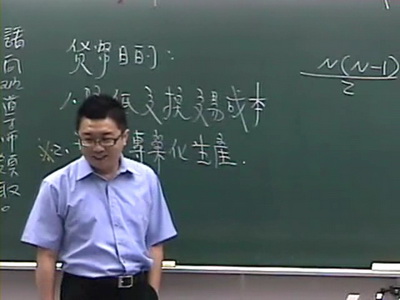 貨幣目的:
1. 低交換交易成本
※2. 專業化生產.
N(N-1)
2
話向
導
師領取。